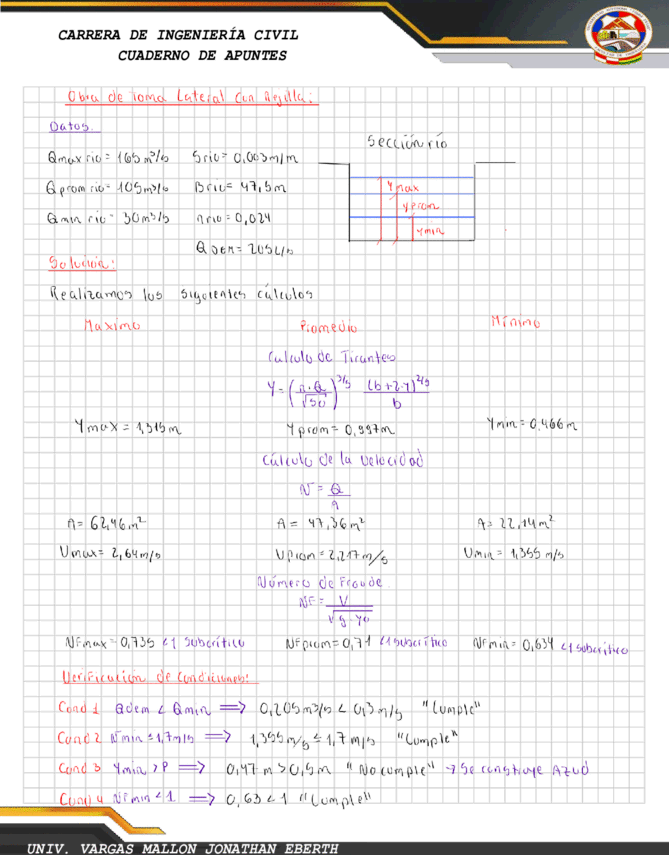 CARRERA DE INGENIERÍA CIVIL
CUADERNO DE APUNTES
Obra de Toma Lateral Con Rejilla:
Datos.
Sección río
Qmax rio = 165 m³/s Srio = 0,003 m/m
Qprom rio = 105 m³/s Brio = 47,5 m
Qmin rio = 30 m³/s nrio = 0,024
QDEM = 205 L/s
Ymax
Yprom
Ymin
Solución:
Realizamos los siguientes cálculos
Maximo Promedio Mínimo
Calculo de Tirantes
Y = (n·Q/√So)^3/5 (b+2·Y)^2/5 / b
Ymax = 1,315 m Yprom = 0,997 m Ymin = 0,466 m
Cálculo de la velocidad
V = Q/A
A = 62,46 m² A = 47,36 m² A = 22,14 m²
Vmax = 2,64 m/s Vprom = 2,217 m/s Vmin = 1,355 m/s
Número de Froude
NF = V/√g·yo
NFmax = 0,735 <1 subcrítico NFprom = 0,71 <1 subcrítico NFmin = 0,634 <1 subcrítico
Verificación de Condiciones:
Cond 1 Qdem < Qmin ⇒ 0,205 m³/s < 0,3 m/s "Cumple"
Cond 2 Vmin ≤ 1,7 m/s ⇒ 1,355 m/s ≤ 1,7 m/s "Cumple"
Cond 3 Ymin > P ⇒ 0,47 m > 0,5 m "No cumple" → Se construye Azud
Cond 4 NFmin < 1 ⇒ 0,63 < 1 "Cumple"
UNIV. VARGAS MALLON JONATHAN EBERTH